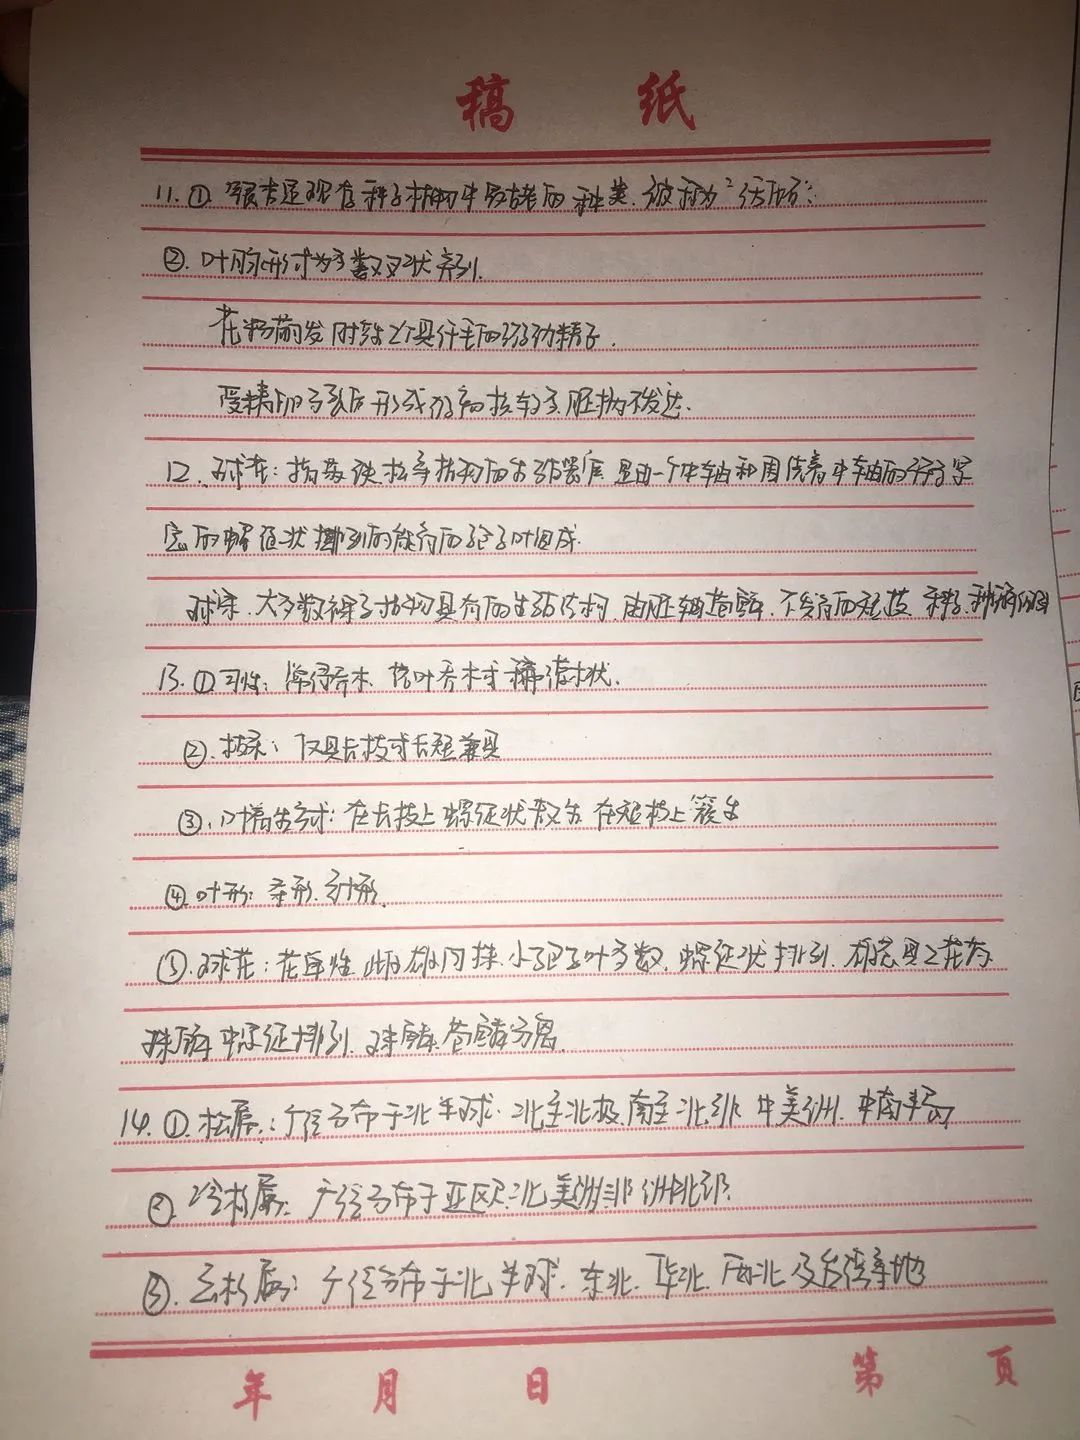 稿 纸
11.① 银杏是现存种子植物中最古老的种类.被称为"活化石".
②.叶脉形式为多数叉状序列.
花粉萌发时产生2个具纤毛的游动精子.
受精卵分裂后形成游离核较多,胚柄不发达.
12.球花:指苏铁松等植物的生殖器官 是由一个中轴和围绕着中轴的
的螺旋状排列的能育的孢子叶组成.
球果.大多数裸子植物具有的生殖结构.由 不发育的短枝 种子.
13.①习性:常绿乔木.落叶乔木或稀灌木状.
②.枝条:仅具长枝或长短兼具
③.叶着生方式:在长枝上螺旋状散生 在短枝上簇生
④.叶形:条形.针形.
⑤.球花:花单性 雌雄同株.小孢子叶多数.螺旋状排列.具2花药.
珠鳞螺旋排列.珠鳞.苞鳞分离.
14.①.松属.:广泛分布于北半球.北至北极.南至北非.中美洲.中南半岛
②.冷杉属:广泛分布于亚欧.北美洲.非洲北部.
③.云杉属:广泛分布于北半球.东北.华北.西北及台湾等地
年 月 日 第 页